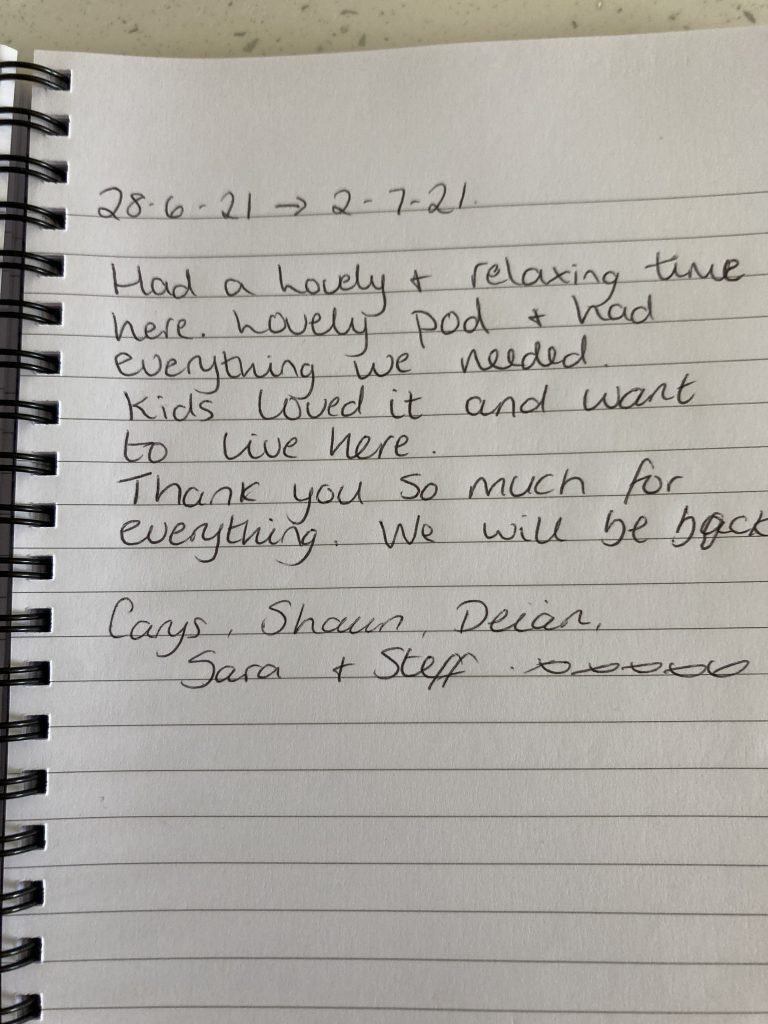 28·6·21 → 2-7-21.
Had a Lovely + relaxing time
here. Lovely pod + had
everything we needed.
Kids loved it and want
to live here.
Thank you so much for
everything. We will be back
Carys, Shaun, Deian,
Sara + Steff. xoxoxoxoxo